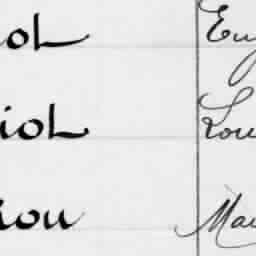 ol Eug
iol Lou
iou Mau